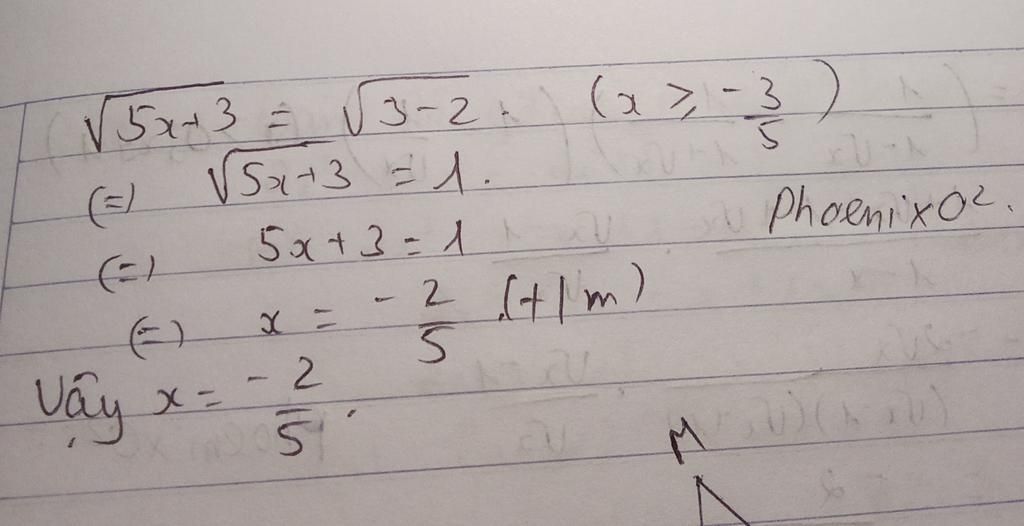 √5x+3 = √3-2. (x ≥ -3/5)
(=) √5x+3 = 1.
PhoenixO².
(=) 5x+3 = 1
(=) x = -2/5 (t/m)
Vậy x = -2/5.
M